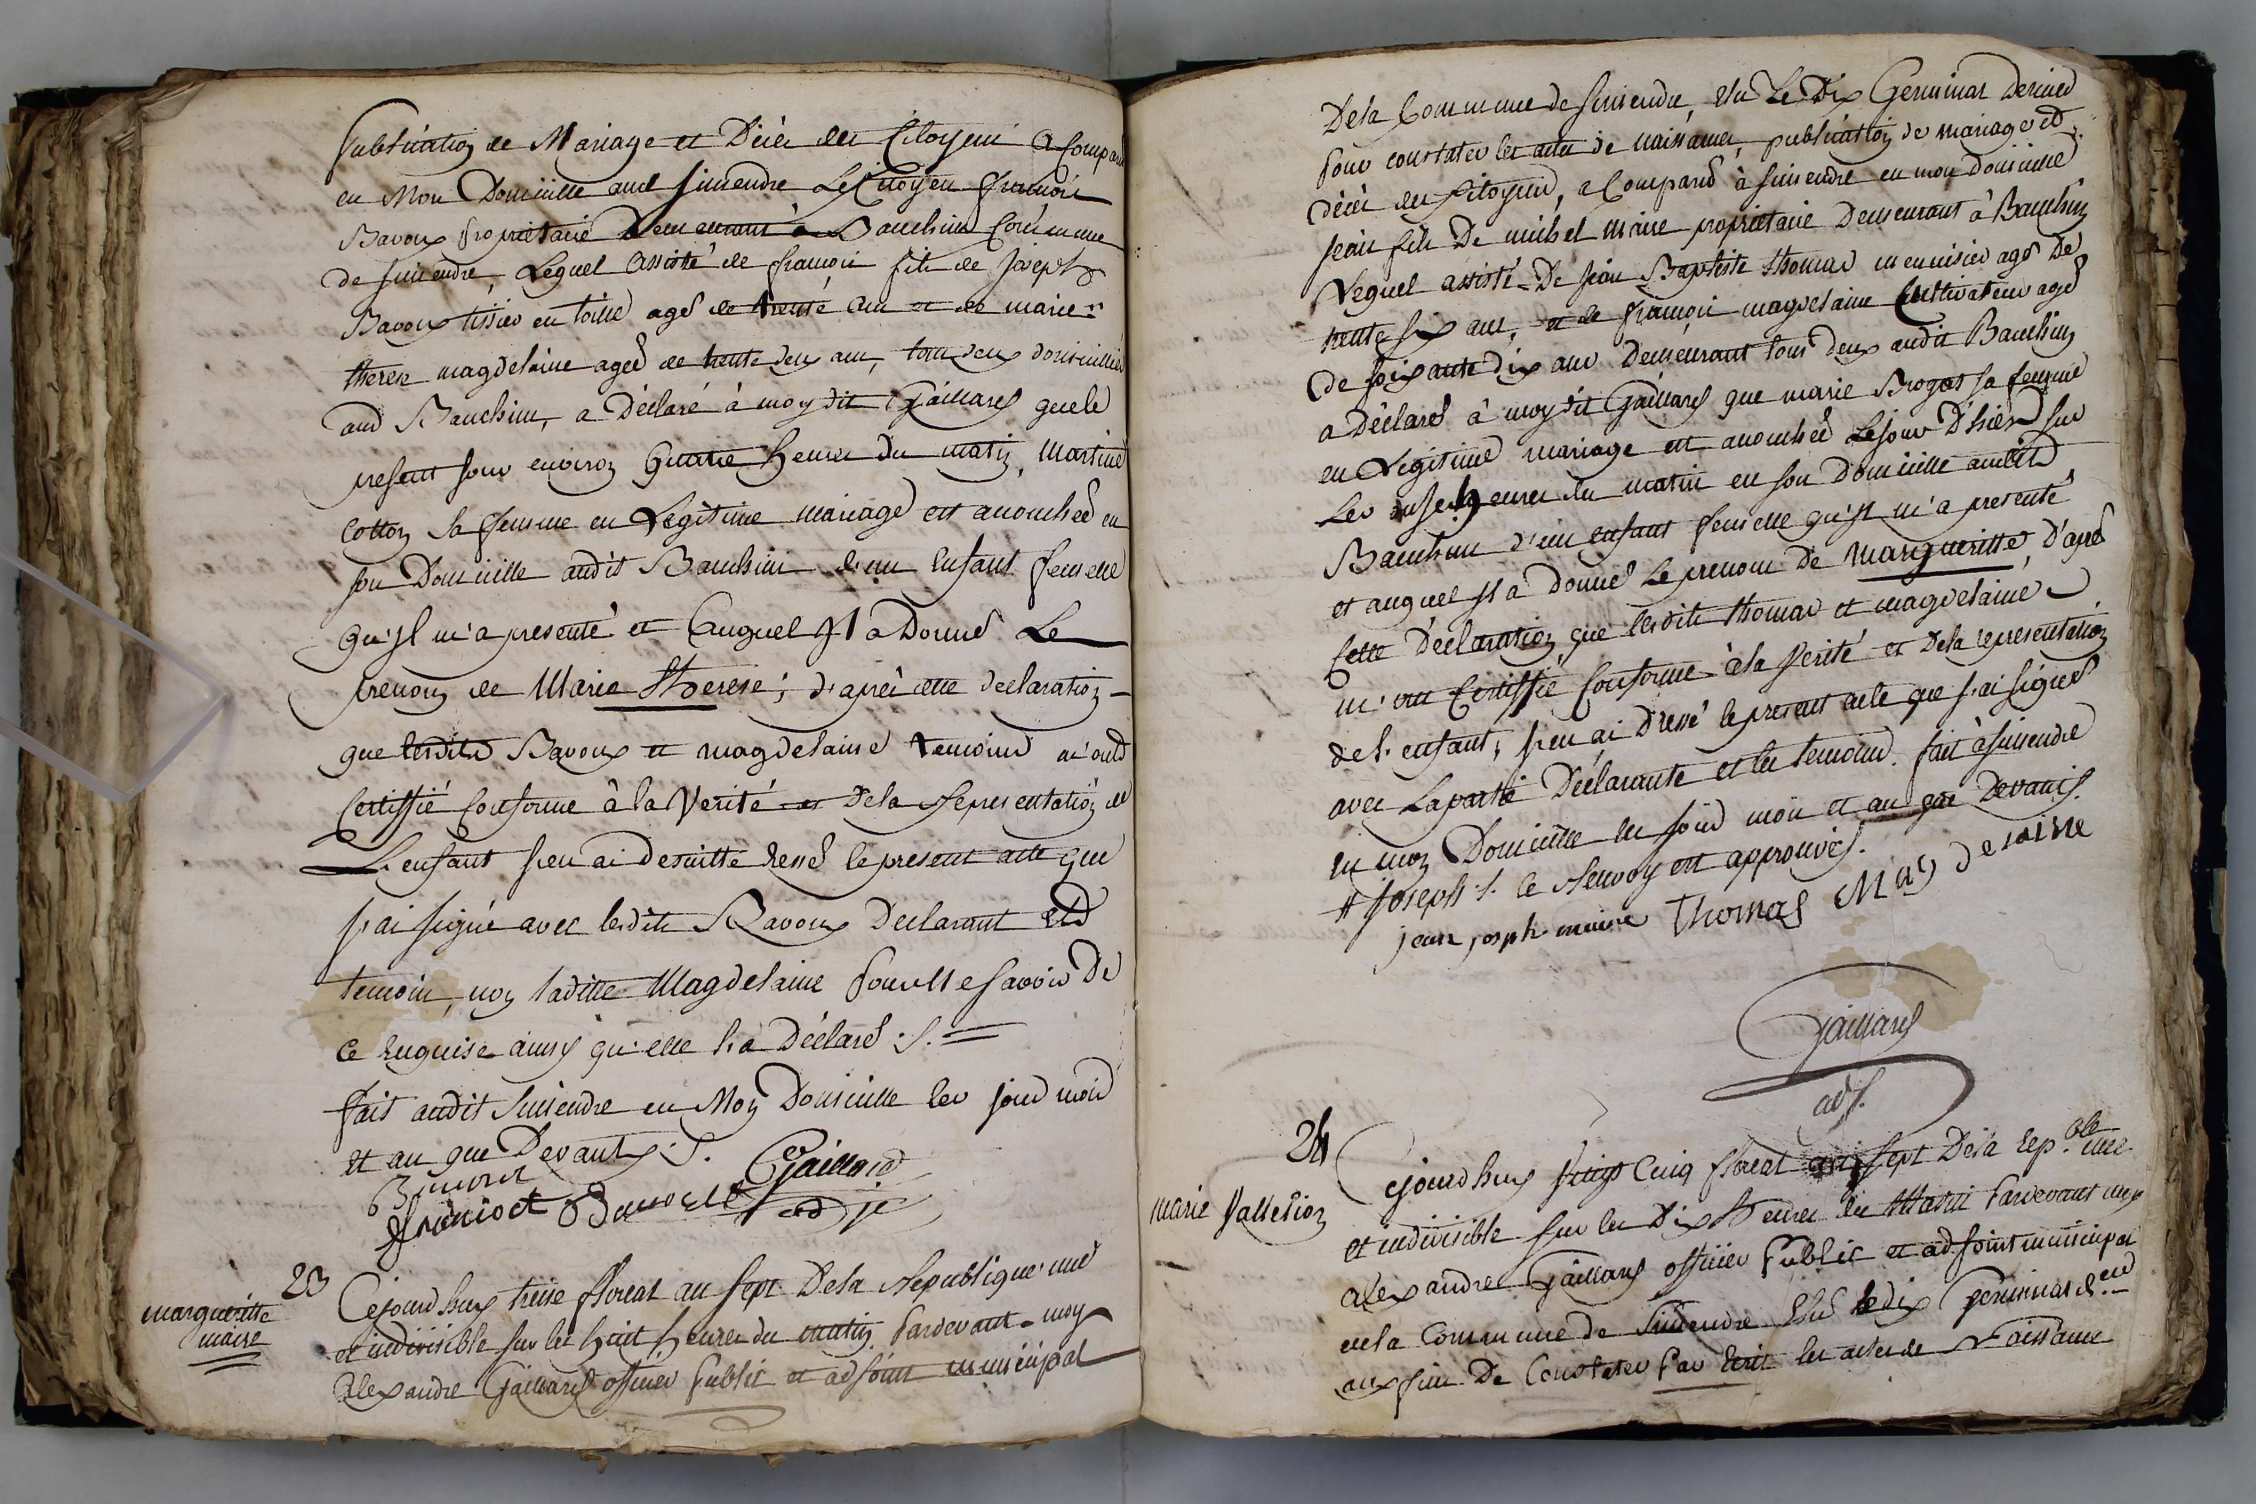 publication de Mariage et Décès des Citoyens a Comparu
en Mon Domicille aud Suisendre Le Citoyen francois
Bavoux proprietaire Demeurant à Bauchin Commune
de Suisendre, Lequel assisté de francois fils de Joseph
Bavoux tissier en toille agé de trente ans et de marie
therese magdelaine ageé de trente deux ans, tous deux domicilliés
aud Bauchin, a Déclaré à moy dit Gaillard que le
present jour environ Quatre heures du matin, Martine
Cotton sa femme en Legitime mariage est accouchée en
son Domicille audit Bauchin d'un Enfant femelle
qu'jl m'a presenté et auquel Jl a Donné Le
prenom de Marie Therese; d'après cette declaration
que lesdits Bavoux et magdelaine temoins m'ont
Certiffié Conforme à la Verité et De la Representation de
L'enfant j'en ai desuitte dressé le present acte que
j'ai signé avec lesdits Bavoux Declarant Et
temoin, non laditte Magdelaine pour ne le savoir De
ce Enquise ainsy qu'elle l'a Déclaré ./.
fait audit Suisendre en Mon Domicille les jour mois
et an que Devant ./.
Bavoux Gaillard
francois Bavoux adj.
23 Cejourdhuy treise floreal an sept Dela Republique une
margueritte
maire
et indivisible sur les huit heures du matin Pardevant moy
Alexandre Gaillard officier Public et adjoint municipal
Dela Commune de Suisendre, élu Le Dix Germinal dernier
pour constater les actes de naissances, publication de mariage et
décès des Citoyens, a Comparu à Suisendre en mon domicille
jean fils De michel maire proprietaire Demeurant à Bauchin
Lequel assisté De jean Baptiste thomas menuisier agé De
trente six ans, et de francois magdelaine Cultivateur agé
de soixante dix ans Demeurant tous deux audit Bauchin
a Déclaré à moy dit Gaillard que marie Brogat sa femme
en Legitime mariage est accouchée Le jour D'hier sur
Les onse heures du matin en son Domicille audit
Bauchin d'un enfant femelle qu'jl m'a presenté
et auquel jl a donné Le prenom De margueritte, d'après
Cette Déclaration que lesdits thomas et magdelaine
m'ont Certiffié Conforme à la Verité et Dela representation
del'enfant, j'en ai Dressé le present acte que j'ai signé
avec La partie Déclarante et les temoins. fait à Suisendre
en mon Domicille les jour mois et an que Devant ./.
# joseph ./. le renvoy est approuvé ./.
jean joseph maire Thomas Magdelaine
Gaillard
adj.
24 Cejourdhuy Vingt Cinq floreal an sept Dela Rep.ble une
marie Valletion
et indivisible sur les Dix heures du Matin Pardevant moy
alexandre Gaillard officier Public et adjoint municipal
dela Commune de Suisendre Elu le dix Germinal d.er
aux fins De Constater Par Ecrit les actes de Naissance